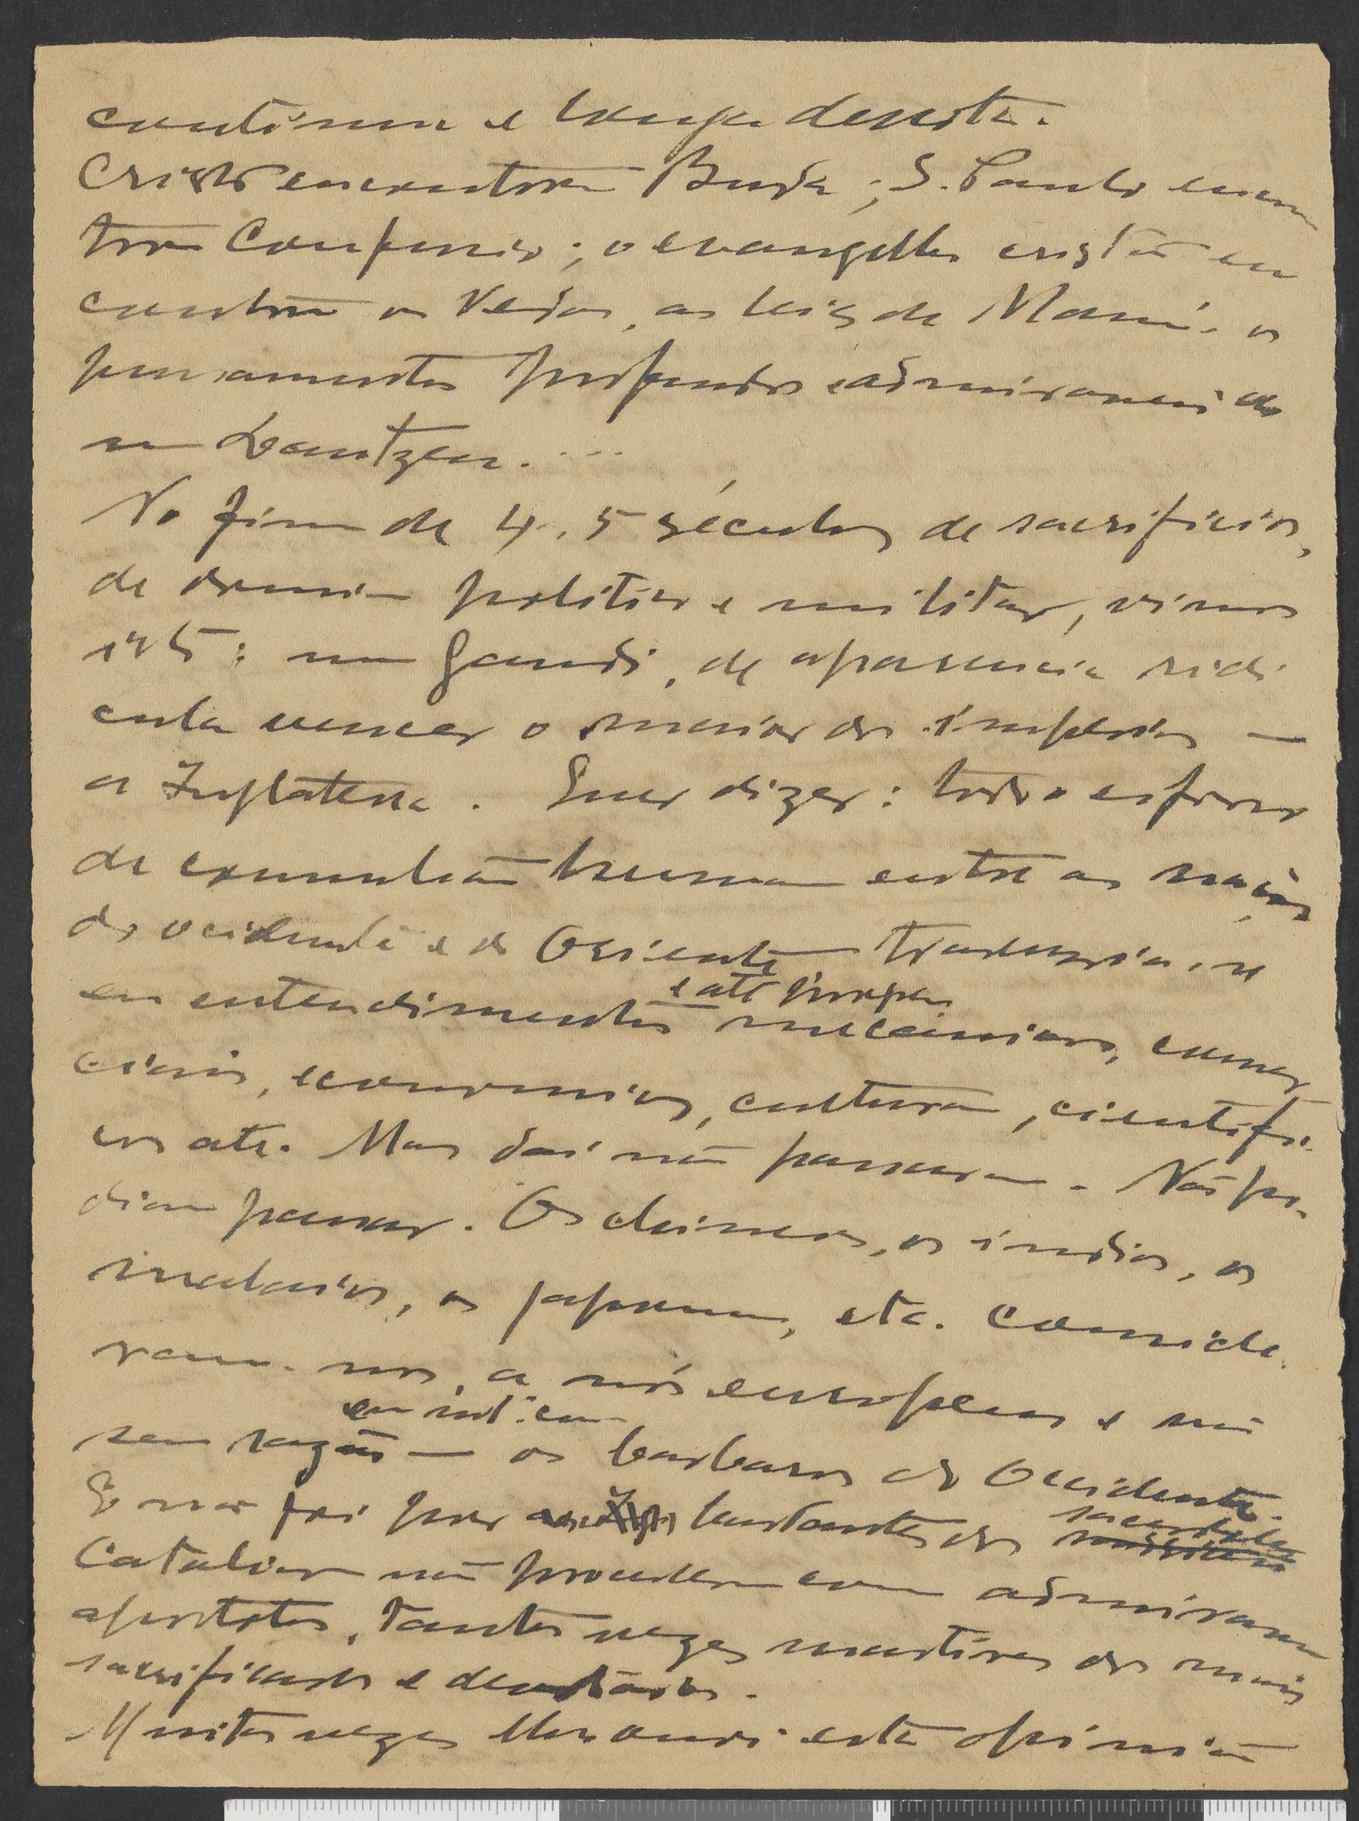 continua e longa derrota.
Cristo encontrou Buda; S. Paulo encon
trou Confucio; o evangelho cristão en
controu os Vedas, as leis de Manú, os
pensamentos profundos e admiraveis do
Lautzeu. ...
No fim de 4, 5 séculos de sacrificios,
de dominio politico e militar, vimos
isto: um Gandi, de aparencia ridi
cula vencer o maior dos impérios —
a Inglaterra. Quer dizer: todo o esforço
de comunhão humana entre as nações
do ocidente e do Oriente traduziu-se
em entendimentos e até mecanicos, comer
ciais, economicos, culturais, cientifi-
cos até. Mas daí não passaram. Não po-
diam passar. Os chineses, os indios, os
malaios, os japoneses, etc. conside-
ram-nos, a nós europeus e não
sem razão — os barbaros do Ocidente.
E não foi por bastantes dos sacerdotes
Catolicos não procederem como admiraveis
apostolos, tantas vezes martires dos mais
sacrificados e devotados.
Muitas vezes lhes ouvi esta opinião